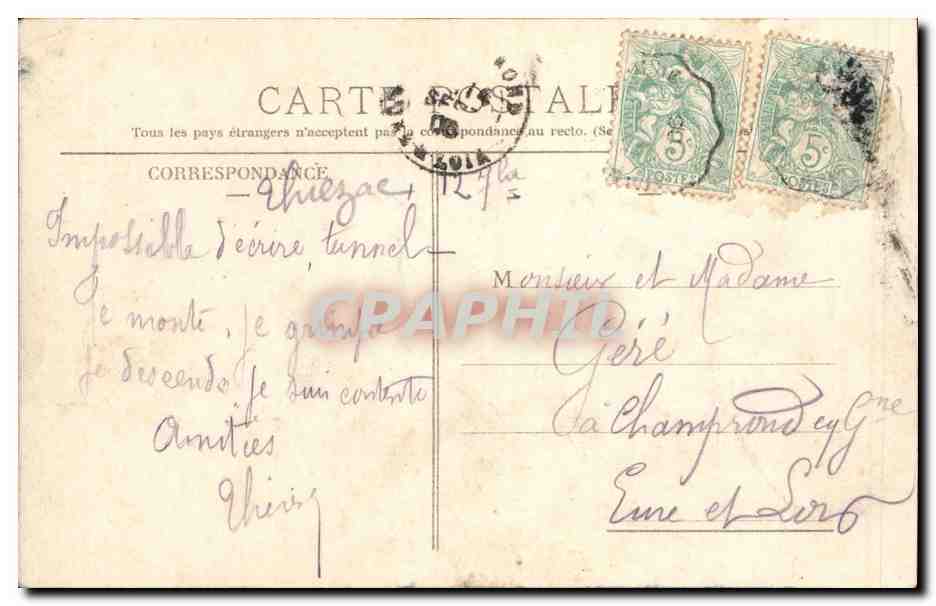 CARTE POSTALE
Tous les pays étrangers n'acceptent pas la correspondance au recto. (Se
CORRESPONDANCE
Thiézac, 12 7bre
Impossible d'écrire, tunnel
Je monte, je grimpe
je descends, je suis contente
Amitiés
Monsieur et Madame
Géré
à Champrond en Gne
Eure et Loir
CPAPHIL
5c
POSTES
5c
POSTES